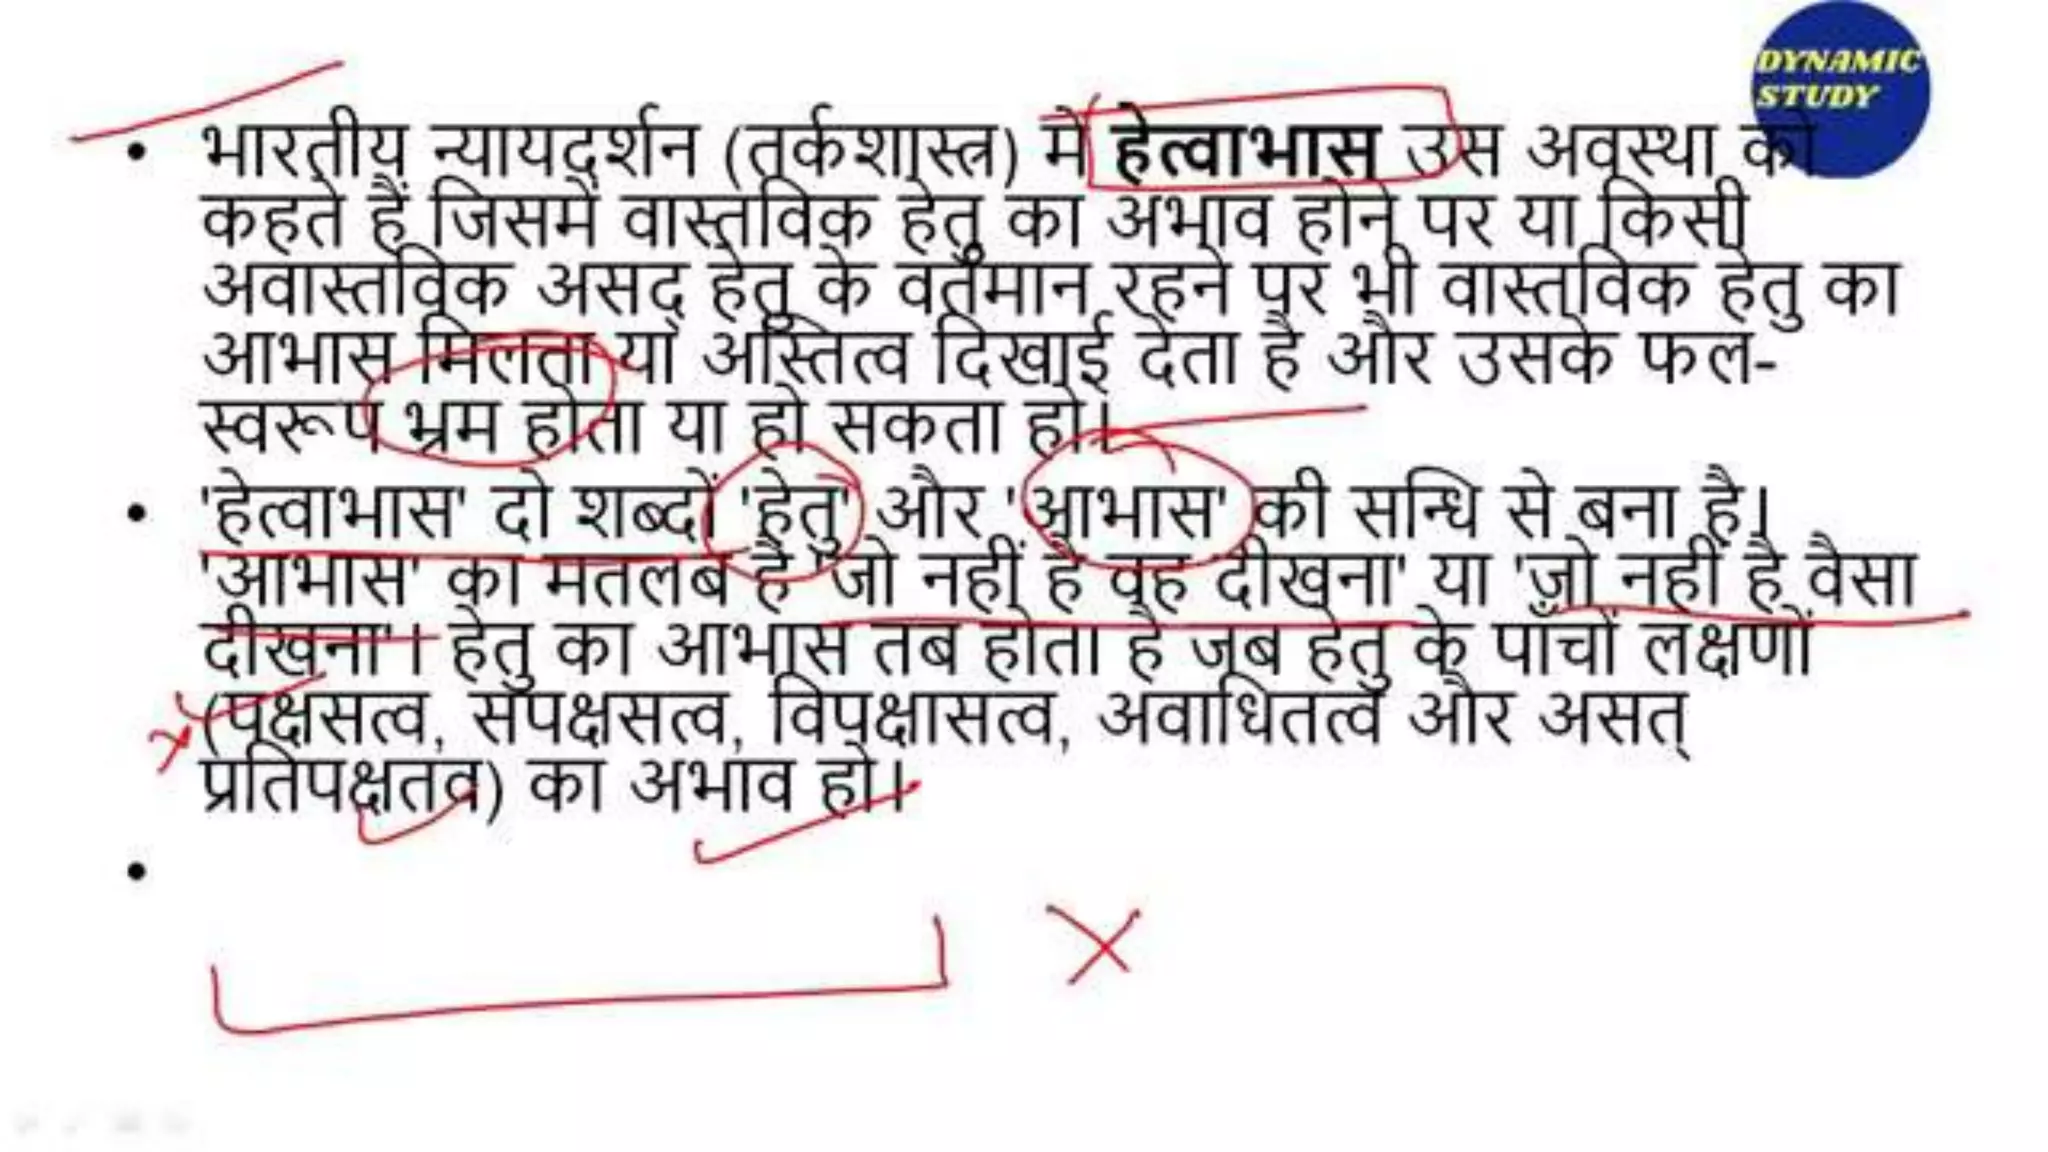 DYNAMIC
STUDY
• भारतीय न्यायदर्शन (तर्कशास्त्र) में हेत्वाभास उस अवस्था को
कहते हैं जिसमें वास्तविक हेतु का अभाव होने पर या किसी
अवास्तविक असद् हेतु के वर्तमान रहने पर भी वास्तविक हेतु का
आभास मिलता या अस्तित्व दिखाई देता है और उसके फल-
स्वरूप भ्रम होता या हो सकता हो।
• 'हेत्वाभास' दो शब्दों 'हेतु' और 'आभास' की सन्धि से बना है।
'आभास' का मतलब है 'जो नहीं है वह दीखना' या 'जो नहीं है वैसा
दीखना'। हेतु का आभास तब होता है जब हेतु के पाँचों लक्षणों
(पक्षसत्व, सपक्षसत्व, विपक्षासत्व, अवाधितत्व और असत्
प्रतिपक्षतव) का अभाव हो।
•